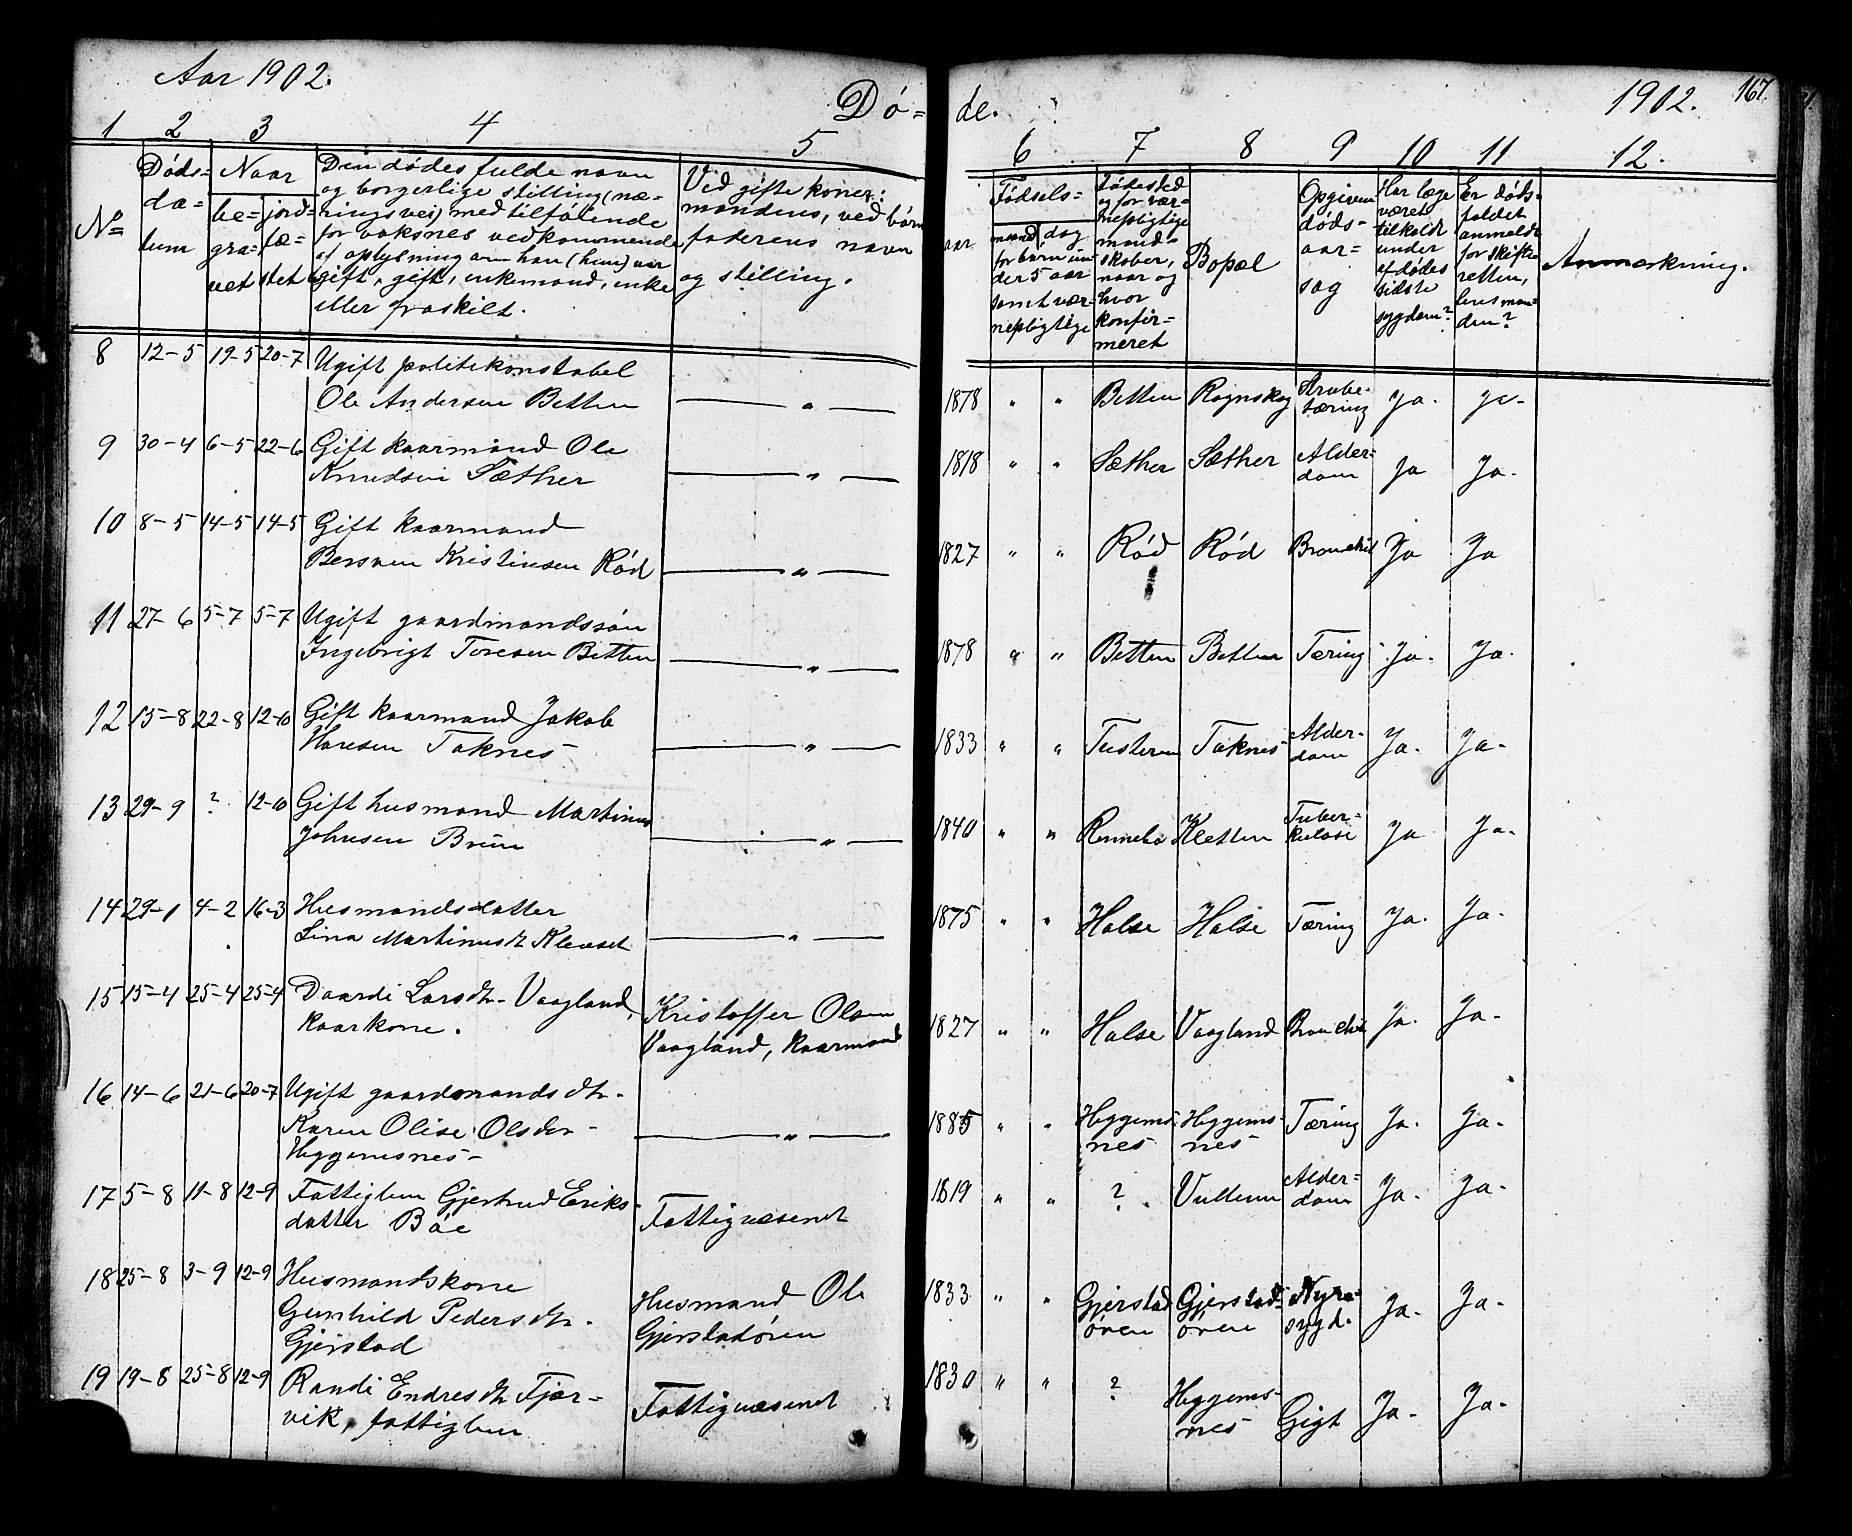 Aar 1902.
Dø=
de.
1902.
167.
1 2 3 4 5
6 7 8 9 10 11 12.
No
Døds=
da=
tum
Naar
be=
gra=
vet
jord=
fæ=
stet
Den dødes fulde navn
og borgerlige stilling (næ=
ringsvei) med tilføiende
for voksnes vedkommende
af oplysning om han (hun) var
ugift, gift, enkemand, enke
eller fraskilt.
Ved gifte koner:
mandens, ved børn
faderens navn
og stilling.
aar
Fødsels=
maaned dag
for børn un
der 5 aar
samt vær=
nepligtige
Fødested
og for vær=
nepligtige
mand=
skaber,
naar og
hvor
konfir=
meret
Bopæl
Opgiven
døds=
aar=
sag
Har læge
været
tilkaldt
under
afdødes
sidste
sygdom?
Er døds=
faldet
anmeldt
for skifte
retten,
lensman=
den?
Anmærkning.
8 12-5 19-5 20-7 Ugift politikonstabel
Ole Andersen Betten — " — 1878 " " Betten Rognskog Strube=
tæring Ja. Ja.
9 30-4 6-5 22-6 Gift kaarmand Ole
Knudsen Sæther — " — 1818 " " Sæther Sæther Alder=
dom Ja Ja.
10 8-5 14-5 14-5 Gift kaarmand
Bersven Kristensen Rød — " — 1827 " " Rød Rød Bronchit Ja Ja
11 27-6 5-7 5-7 Ugift gaardmandssøn
Ingebrigt Toresen Betten — " — 1878 " " Betten Betten Tæring Ja. Ja.
12 15-8 22-8 12-10 Gift kaarmand Jakob
Haresen Taknes — " — 1833 " " Tusteren Taknes Alder=
dom Ja. Ja.
13 29-9 ? 12-10 Gift husmand Martinus
Johnsen Bruu — " — 1840 " " Rennebo Kletten Tuber=
kulose Ja Ja.
14 29-1 4-2 16-3 Husmandsdatter
Lina Martinusdt Klevset — " — 1875 " " Halse Halse Tæring Ja. Ja.
15 15-4 25-4 25-4 Daardi Larsdtr. Vaagland,
kaarkone. Kristoffer Olsen
Vaagland, kaarmand 1827 " " Halse Vaagland Bronchit Ja. Ja.
16 14-6 21-6 20-7 Ugift gaardmandsdtr.
Karen Olise Olsdtr=
Heggemsnes — " — 1885 " " Heggems=
nes Heggems=
nes Tæring Ja. Ja.
17 5-8 11-8 12-9 Fattiglem Gjertrud Eriks=
datter Bøe Fattigvæsenet 1819 " " ? Vullum Alder=
dom Ja. Ja.
18 25-8 3-9 12-9 Husmandskone
Gunhild Pedersdtr.
Gjerstad Husmand Ole
Gjerstadøren 1833 " " Gjerstad
øren Gjerstad=
øren Nyre=
sygd. Ja. Ja.
19 19-8 25-8 12-9 Randi Endresdtr Fjær=
vik, fattiglem Fattigvæsenet 1830 " " ? Heggems=
nes Gigt Ja. Ja.